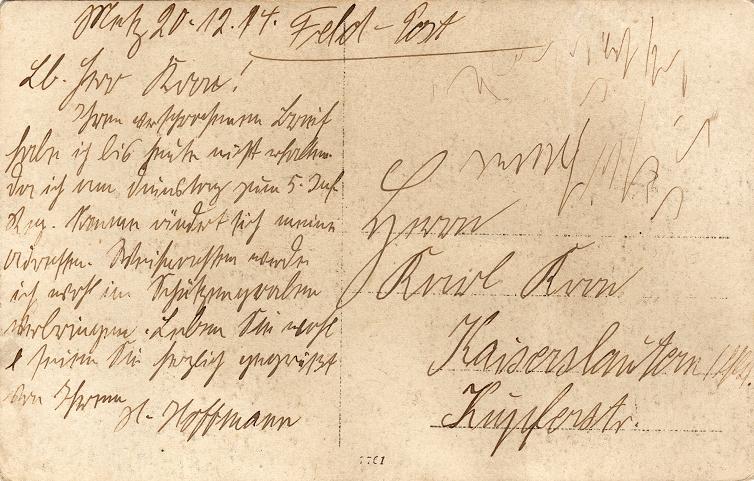 Metz 20.12.14. Feld-Post
Lb. Herr Kron!
Ihren versprochenen Brief
habe ich bis heute nicht erhalten.
Da ich am Dienstag zum 5. Inf.
Reg. komme ändert sich meine
Adresse. Weihnachten werde
ich wohl im Schützengraben
verbringen. Leben Sie wohl
& seien Sie herzlich gegrüßt
von Ihrem
H. Hoffmann
Herrn
Karl Kron
Kaiserslautern
Kupferstr.
7761